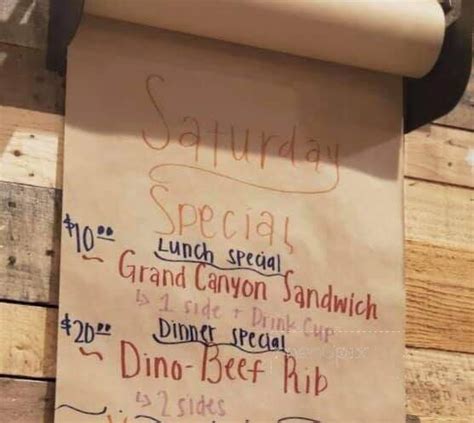 Saturday
Special
$10.00 Lunch special
~ Grand Canyon Sandwich
↳ 1 side + Drink Cup
$20.00 Dinner special
~ Dino-Beef Rib
↳ 2 sides